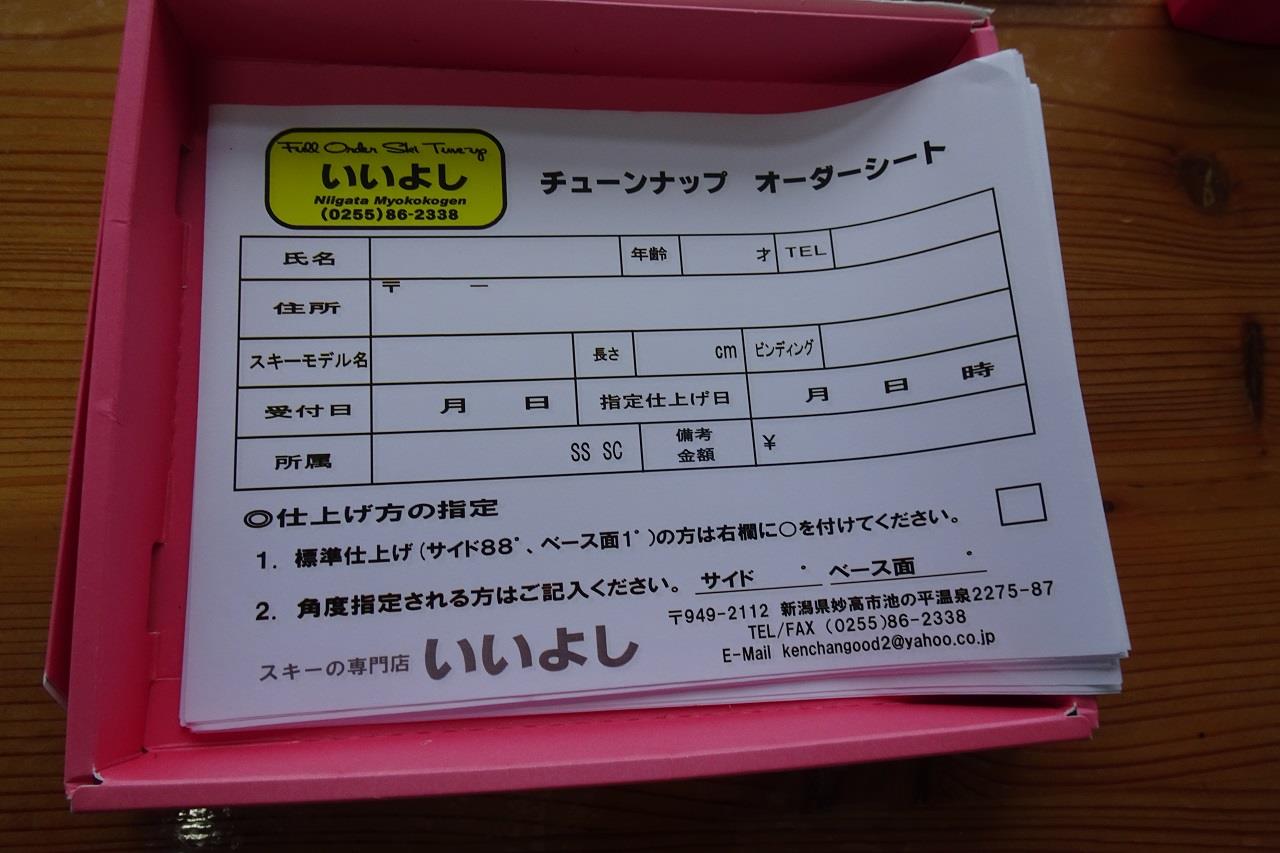 Full Order Ski Tune-up
いいよし
Niigata Myokokogen
(0255)86-2338
チューンナップ オーダーシート
氏名 年齢 才 TEL
住所 〒 －
スキーモデル名 長さ cm ビンディング
受付日 月 日 指定仕上げ日 月 日 時
所属 SS SC 備考 金額 ¥
◎仕上げ方の指定
1. 標準仕上げ(サイド88°、ベース面1°)の方は右欄に○を付けてください。
2. 角度指定される方はご記入ください。 サイド ° ベース面 °
〒949-2112 新潟県妙高市池の平温泉2275-87
TEL/FAX (0255)86-2338
E-Mail kenchangood2@yahoo.co.jp
スキーの専門店 いいよし